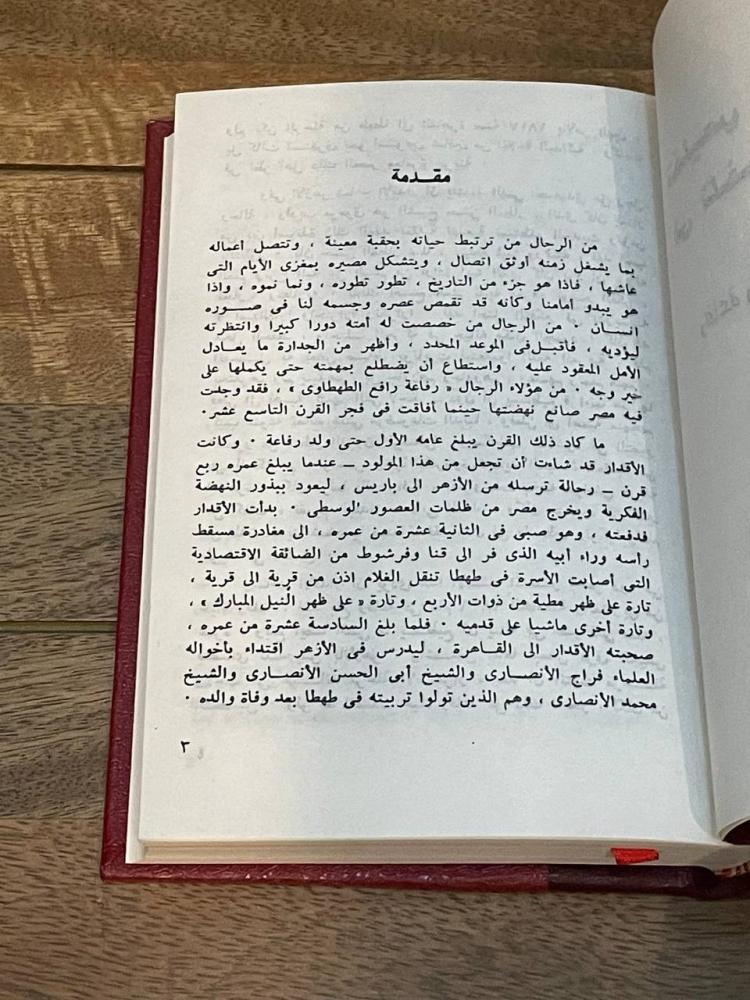 مقـدمة
من الرجال من ترتبط حياته بحقبة معينة ، وتتصل اعماله
بما يشغل زمنه أوثق اتصال ، ويتشكل مصيره بمغزى الأيام التى
عاشها ، فاذا هو جزء من التاريخ ، تطور تطوره ، ونما نموه ، واذا
هو يبدو أمامنا وكأنه قد تقمص عصره وجسمه لنا فى صـــوره
انســان ٠ من الرجال من خصصت له أمته دورا كبيرا وانتظرته
ليؤديه ، فأقبل فى الموعد المحدد ، وأظهر من الجدارة ما يعــادل
الأمل المعقود عليه ، واستطاع أن يضطلع بمهمته حتى يكملها على
خير وجه ٠ من هؤلاء الرجال « رفاعة رافع الطهطاوى » ، فقد وجدت
فيه مصر صانع نهضتها حينما أفاقت فى فجر القرن التاسع عشر ٠
ما كاد ذلك القرن يبلغ عامه الأول حتى ولد رفاعة ٠ وكانت
الأقدار قد شاءت أن تجعل من هذا المولود ــ عندما يبلغ عمره ربع
قرن ــ رحالة ترسله من الأزهر الى باريس ، ليعود ببذور النهضة
الفكرية ويخرج مصر من ظلمات العصور الوسطى ٠ بدأت الأقدار
فدفعته ، وهو صبى فى الثانية عشرة من عمره ، الى مغادرة مسقط
رأسه وراء أبيه الذى فر الى قنا وفرشوط من الضائقة الاقتصادية
التى أصابت الأسرة فى طهطا تنقل الغلام اذن من قرية الى قرية ،
تارة على ظهر مطية من ذوات الأربع ، وتارة « على ظهر النيل المبارك » ،
وتارة أخرى ماشيا على قدميه ٠ فلما بلغ السادسة عشرة من عمره ،
صحبته الأقدار الى القــاهرة ، ليدرس فى الأزهر اقتداء بأخواله
العلماء فراج الأنصــارى والشيخ أبى الحسن الأنصــارى والشيخ
محمد الأنصارى ، وهم الذين تولوا تربيته فى طهطا بعد وفاة والده ٠
٣